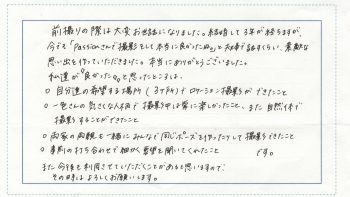 前撮りの際は大変お世話になりました。結婚して3年が経ちますが、
今でも「Passionさんで撮影をして本当に良かったね」と夫婦で話すくらい、素敵な
思い出を作っていただきました。本当にありがとうございました。
私達が「良かった」と思ったところは、
○ 自分達の希望する場所（3ヶ所）でロケーション撮影ができたこと
○ 一色さんの気さくな人柄で撮影中は常に楽しかったこと、また自然体で
撮影をすることができたこと
○ 両家の両親も一緒にみんなで同じポーズを作ったりして撮影できたこと
○ 事前の打ち合わせで細かく要望を聞いてくれたこと です。
また今後も利用させていただくことがあると思いますので、
その時はよろしくお願いします。